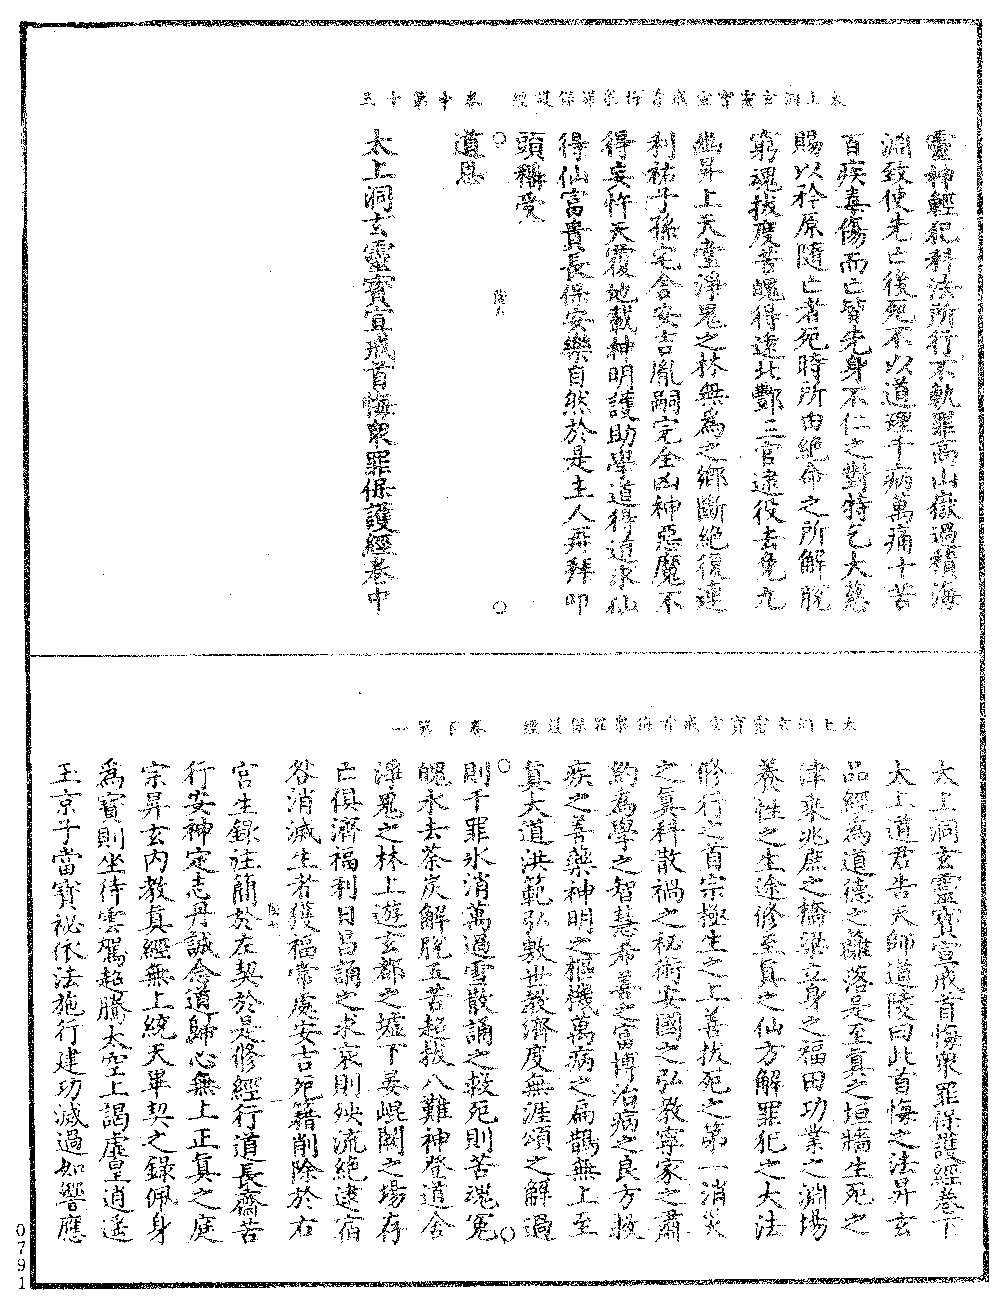 太上洞玄靈寶宣戒首悔眾罪保護經　卷中第十五
靈神輕犯科法所行不軌罪高山嶽過積海
淵致使先亡後死不以道理千病萬痛十苦
百疾毒傷而亡皆先身不仁之對特乞大慈
賜以矜原隨亡者死時所由絕命之所解脫
窮魂拔度苦魄得遠北酆三官逮役去免九
幽昇上天堂淨冕之林無為之鄉斷絕復連
利祐子孫宅舍安吉胤嗣完全凶神惡魔不
得妄忤天覆地載神明護助學道得道求仙
得仙富貴長保安樂自然於是主人再拜叩
頭稱受
道恩
太上洞玄靈寶宣戒首悔眾罪保護經卷中
太上洞玄靈寶宣戒首悔眾罪保護經　卷下第一
太上洞玄靈寶宣戒首悔眾罪保護經卷下
太上道君告天師道陵曰此首悔之法昇玄
品經為道德之離落是至真之垣牆生死之
津來兆庶之橋梁立身之福田功業之淵場
養性之生途修至真之仙方解罪犯之大法
修行之首宗極生之上善拔死之第一消災
之真科散禍之祕術安國之弘教寧家之肅
約為學之智慧希善之富博治病之良方救
疾之善藥神明之樞機萬病之扁鵲無上至
真大道洪範弘敷世教濟度無涯頌之解過
則千罪冰消萬過雪散誦之救死則苦魂冤
魄永去荼炭解脫五苦超拔八難神登道舍
淨冕之林上遊玄都之墟下晏崐閬之場存
亡俱濟福利日昌誦之求哀則殃流絕逮宿
咎消滅生者獲福常處安吉死籍削除於右
宮生錄注簡於左契於是修經行道長齋苦
行安神定志丹誠念道歸心無上正真之庭
宗昇玄內教真經無上統天畢契之錄佩身
為寶則坐待雲駕超騰太空上謁虛皇逍遙
玉京子當寶祕依法施行建功滅過如響應
0791